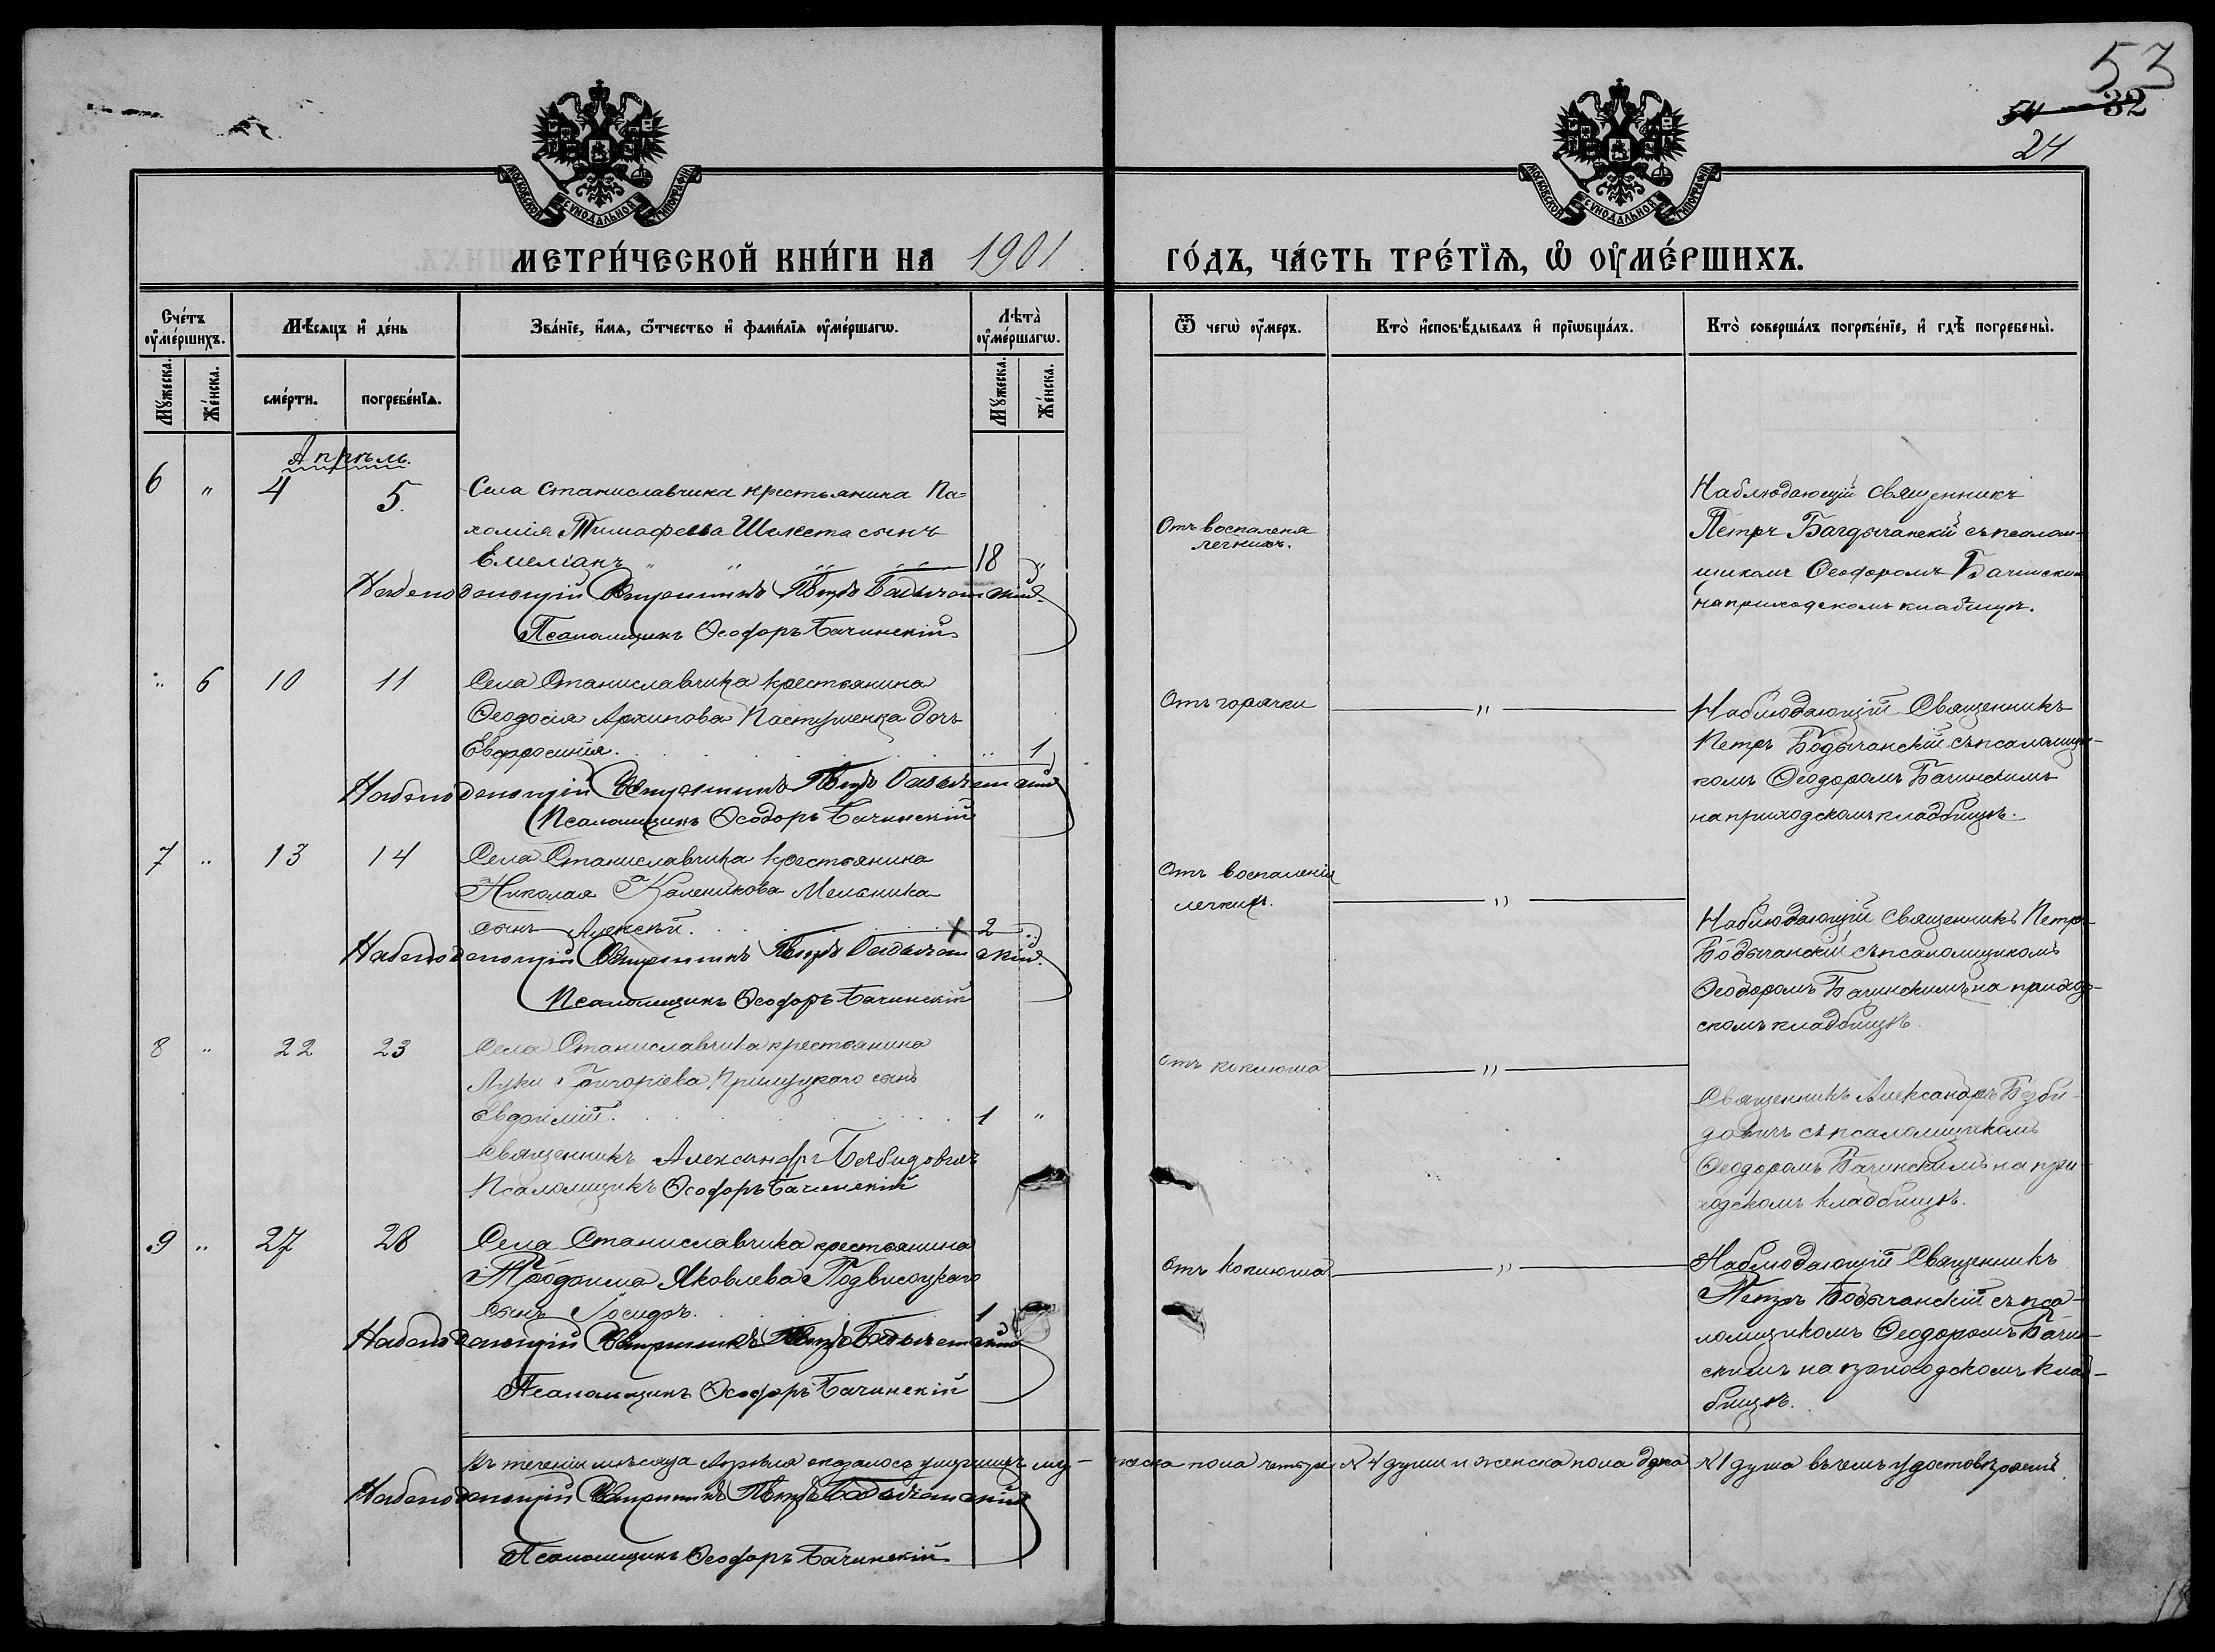 53
54 32
24
МОСКОВСКОЙ СѴНОДАЛЬНОЙ ТИПОГРАФІИ
МОСКОВСКОЙ СѴНОДАЛЬНОЙ ТИПОГРАФІИ
МЕТРИ́ЧЕСКОЙ КНИ́ГИ НА 1901 ГО́ДЪ, ЧА́СТЬ ТРЕ́ТЇѦ, Ѡ ОУМЕ́РШИХЪ.
Сче́тъ оуме́ршихъ.
Мѣ́сяцъ и де́нь
Зва́нїе, и́мя, ѻ҆́тчество и фами́лїя оуме́ршагѡ.
Лѣта̀ оуме́ршагѡ.
Ѿ чегѡ̀ оу́меръ.
Кто̀ и҆сповѣ́дывалъ и прїѡбща́лъ.
Кто̀ соверша́лъ погребе́нїе, и гдѣ̀ погребены̀.
Му́жеска.
Же́нска.
сме́рти.
погребе́нїѧ.
Му́жеска.
Же́нска.
Апрѣль.
6 " 4 5.
Села Станиславчика крестьянина Па=
хомія Тимофеева Шелеста сынъ
Емеліанъ 18 "
Наблюдающій Священникъ Петръ Бодычанскій
Псаломщикъ Ѳеодоръ Бачинскій
Отъ воспаленя
легкихъ.
Наблюдающій священникъ
Петръ Багдычанскій съ псалом-
щикомъ Ѳеодоромъ Бачински
на приходскомъ кладбищѣ.
" 6 10 11
Села Станиславчика крестьянина
Ѳеодосія Архипова Пастушенка дочь
Евфросинія. " 1
Наблюдающій Священникъ Петръ Бодычанскій
Псаломщикъ Ѳеодоръ Бачинскій
Отъ горячки "
Наблюдающій Священникъ
Петръ Бодычанскій съ псаломщи-
комъ Ѳеодоромъ Бачинскимъ
на приходскомъ кладбищѣ.
7 " 13 14
Села Станиславчика крестьянина
Николая Каленикова Мельника
сынъ Алексѣй. 2 "
Наблюдающій Священникъ Петръ Бодычанскій.
Псаломщикъ Ѳеодоръ Бачинскій
Отъ воспаленія
легкихъ. "
Наблюдающій Священникъ Петръ
Бодычанскій съ псаломщикомъ
Ѳеодоромъ Бачинскимъ на приход-
скомъ кладбищѣ.
8 " 22 23
Села Станиславчика крестьянина
Луки Григоріева Прилуцкаго сынъ
Евфимій. 1 "
Священникъ Александръ Безбидовичъ
Псаломщикъ Ѳеодоръ Бачинскій
Отъ коклюша "
Священникъ Александръ Безби-
довичъ съ псаломщикомъ
Ѳеодоромъ Бачинскимъ на при-
ходскомъ кладбищѣ.
9 " 27 28
Села Станиславчика крестьянина
Трофима Яковлева Подвисоцкаго
сынъ Іосифъ. 1
Наблюдающій Священникъ Петръ Бодычанскій
Псаломщикъ Ѳеодоръ Бачинскій
Отъ коклюша "
Наблюдающій Священникъ
Петръ Бодычанскій съ пса-
ломщикомъ Ѳеодоромъ Бачин-
скимъ на приходскомъ клад-
бищѣ.
Въ теченіи мѣсяца Апрѣля оказалось умершихъ му-жеска пола четыре № 4 души и женска пола одна № 1 душа въ чемъ удостовѣряемъ.
Наблюдающій Священникъ Петръ Бодычанскій
Псаломщикъ Ѳеодоръ Бачинскій